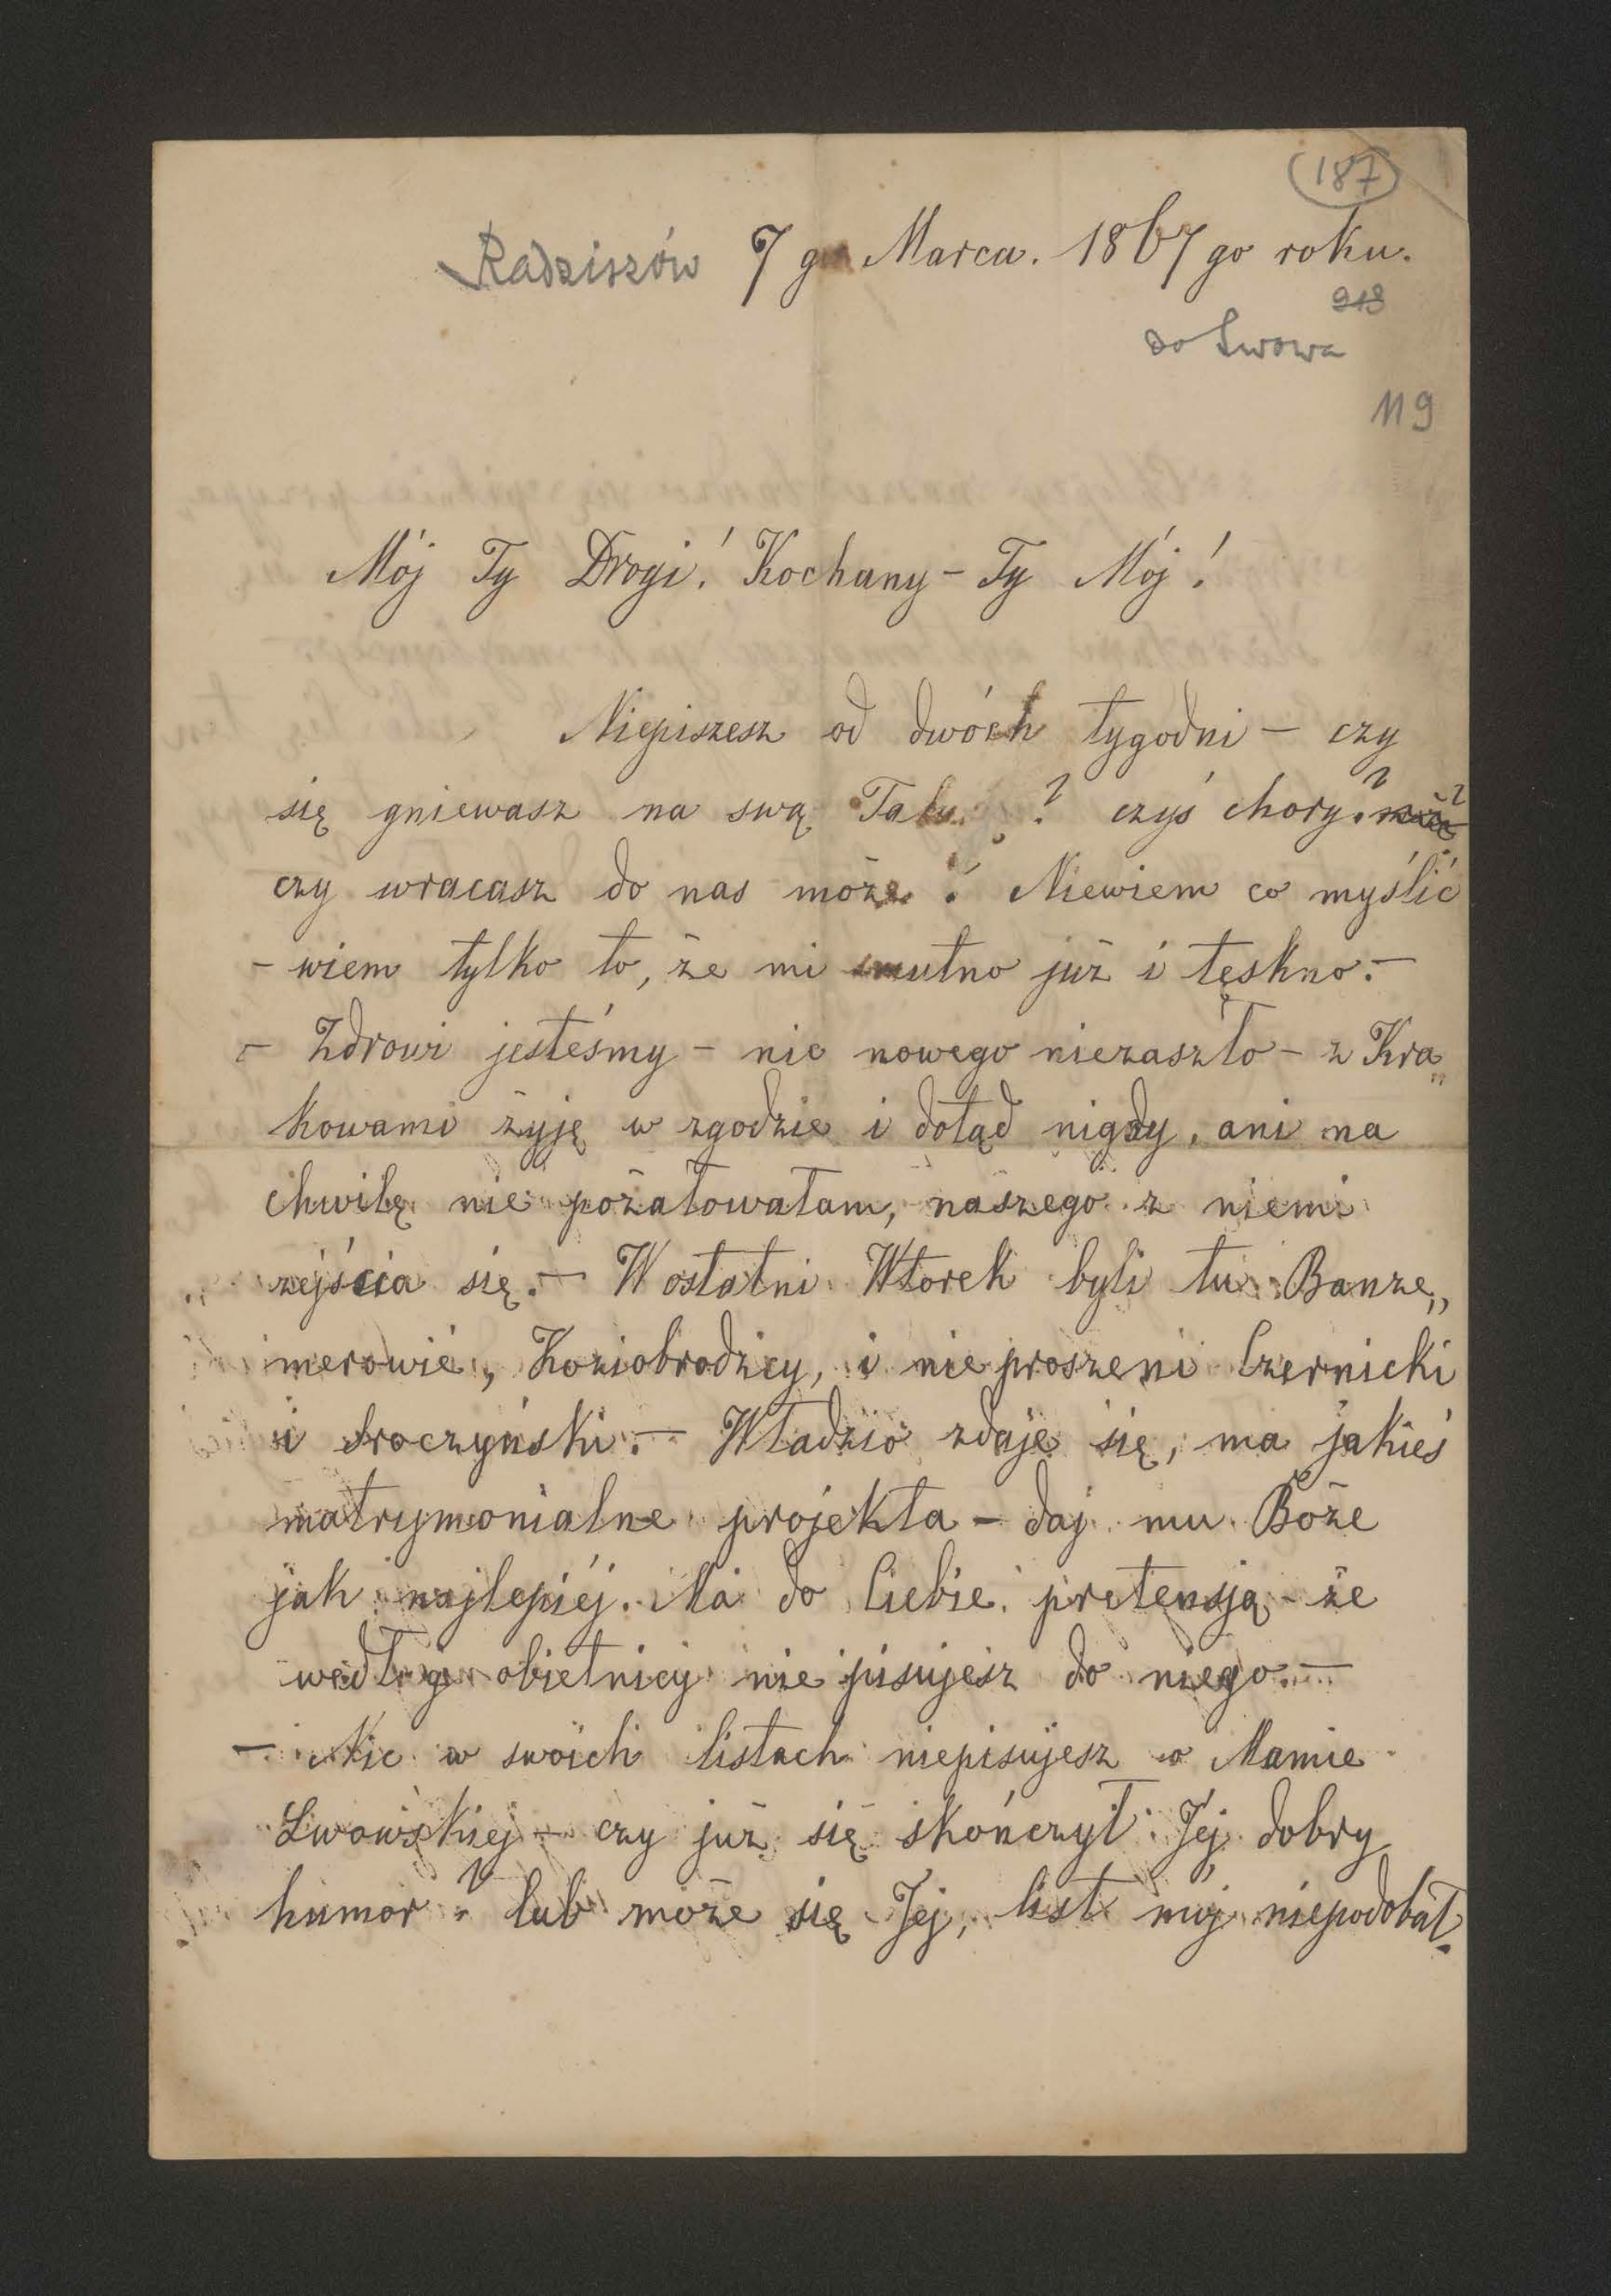 187
Radziszów 7 go Marca. 1867 go roku.
213
do Lwowa
119
Mój Ty Drogi! Kochany - Ty Mój!
Niepiszesz od dwóch tygodni - czy
się gniewasz na swą ? czyś chory?
czy wracasz do nas może? Niewiem co myślić
- wiem tylko to, że mi smutno już i tęskno. -
- Zdrowi jesteśmy - nic nowego niezaszło - z Kra„
kowami żyję w zgodzie i dotąd nigdy, ani na
chwilę nie pożałowałam, naszego z niemi
zejścia się. - W ostatni Wtorek byli tu Banze„
merowie, Koziobrodzcy, i nieproszeni Czernicki
i Sroczyński. - Władzio zdaje się, ma jakieś
matrymonialne projekta - daj mu Boże
jak najlepiéj. Ma do Ciebie pretensją - że
według obietnicy nie pisujesz do niego. -
- Nic w swoich listach niepisujesz o Mamie
Lwowskiej - czy już się skończył Jej dobry
humor? lub może się Jej, list mój niepodobał.